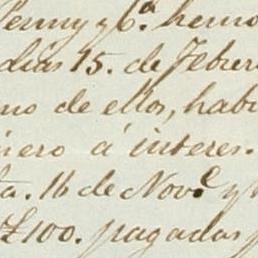 Penny y Cª. hemo
dias 15. de Febrer
no de ellos, habi
nero á interes.
ta. 16 de Nov.e y
£100. pagadas